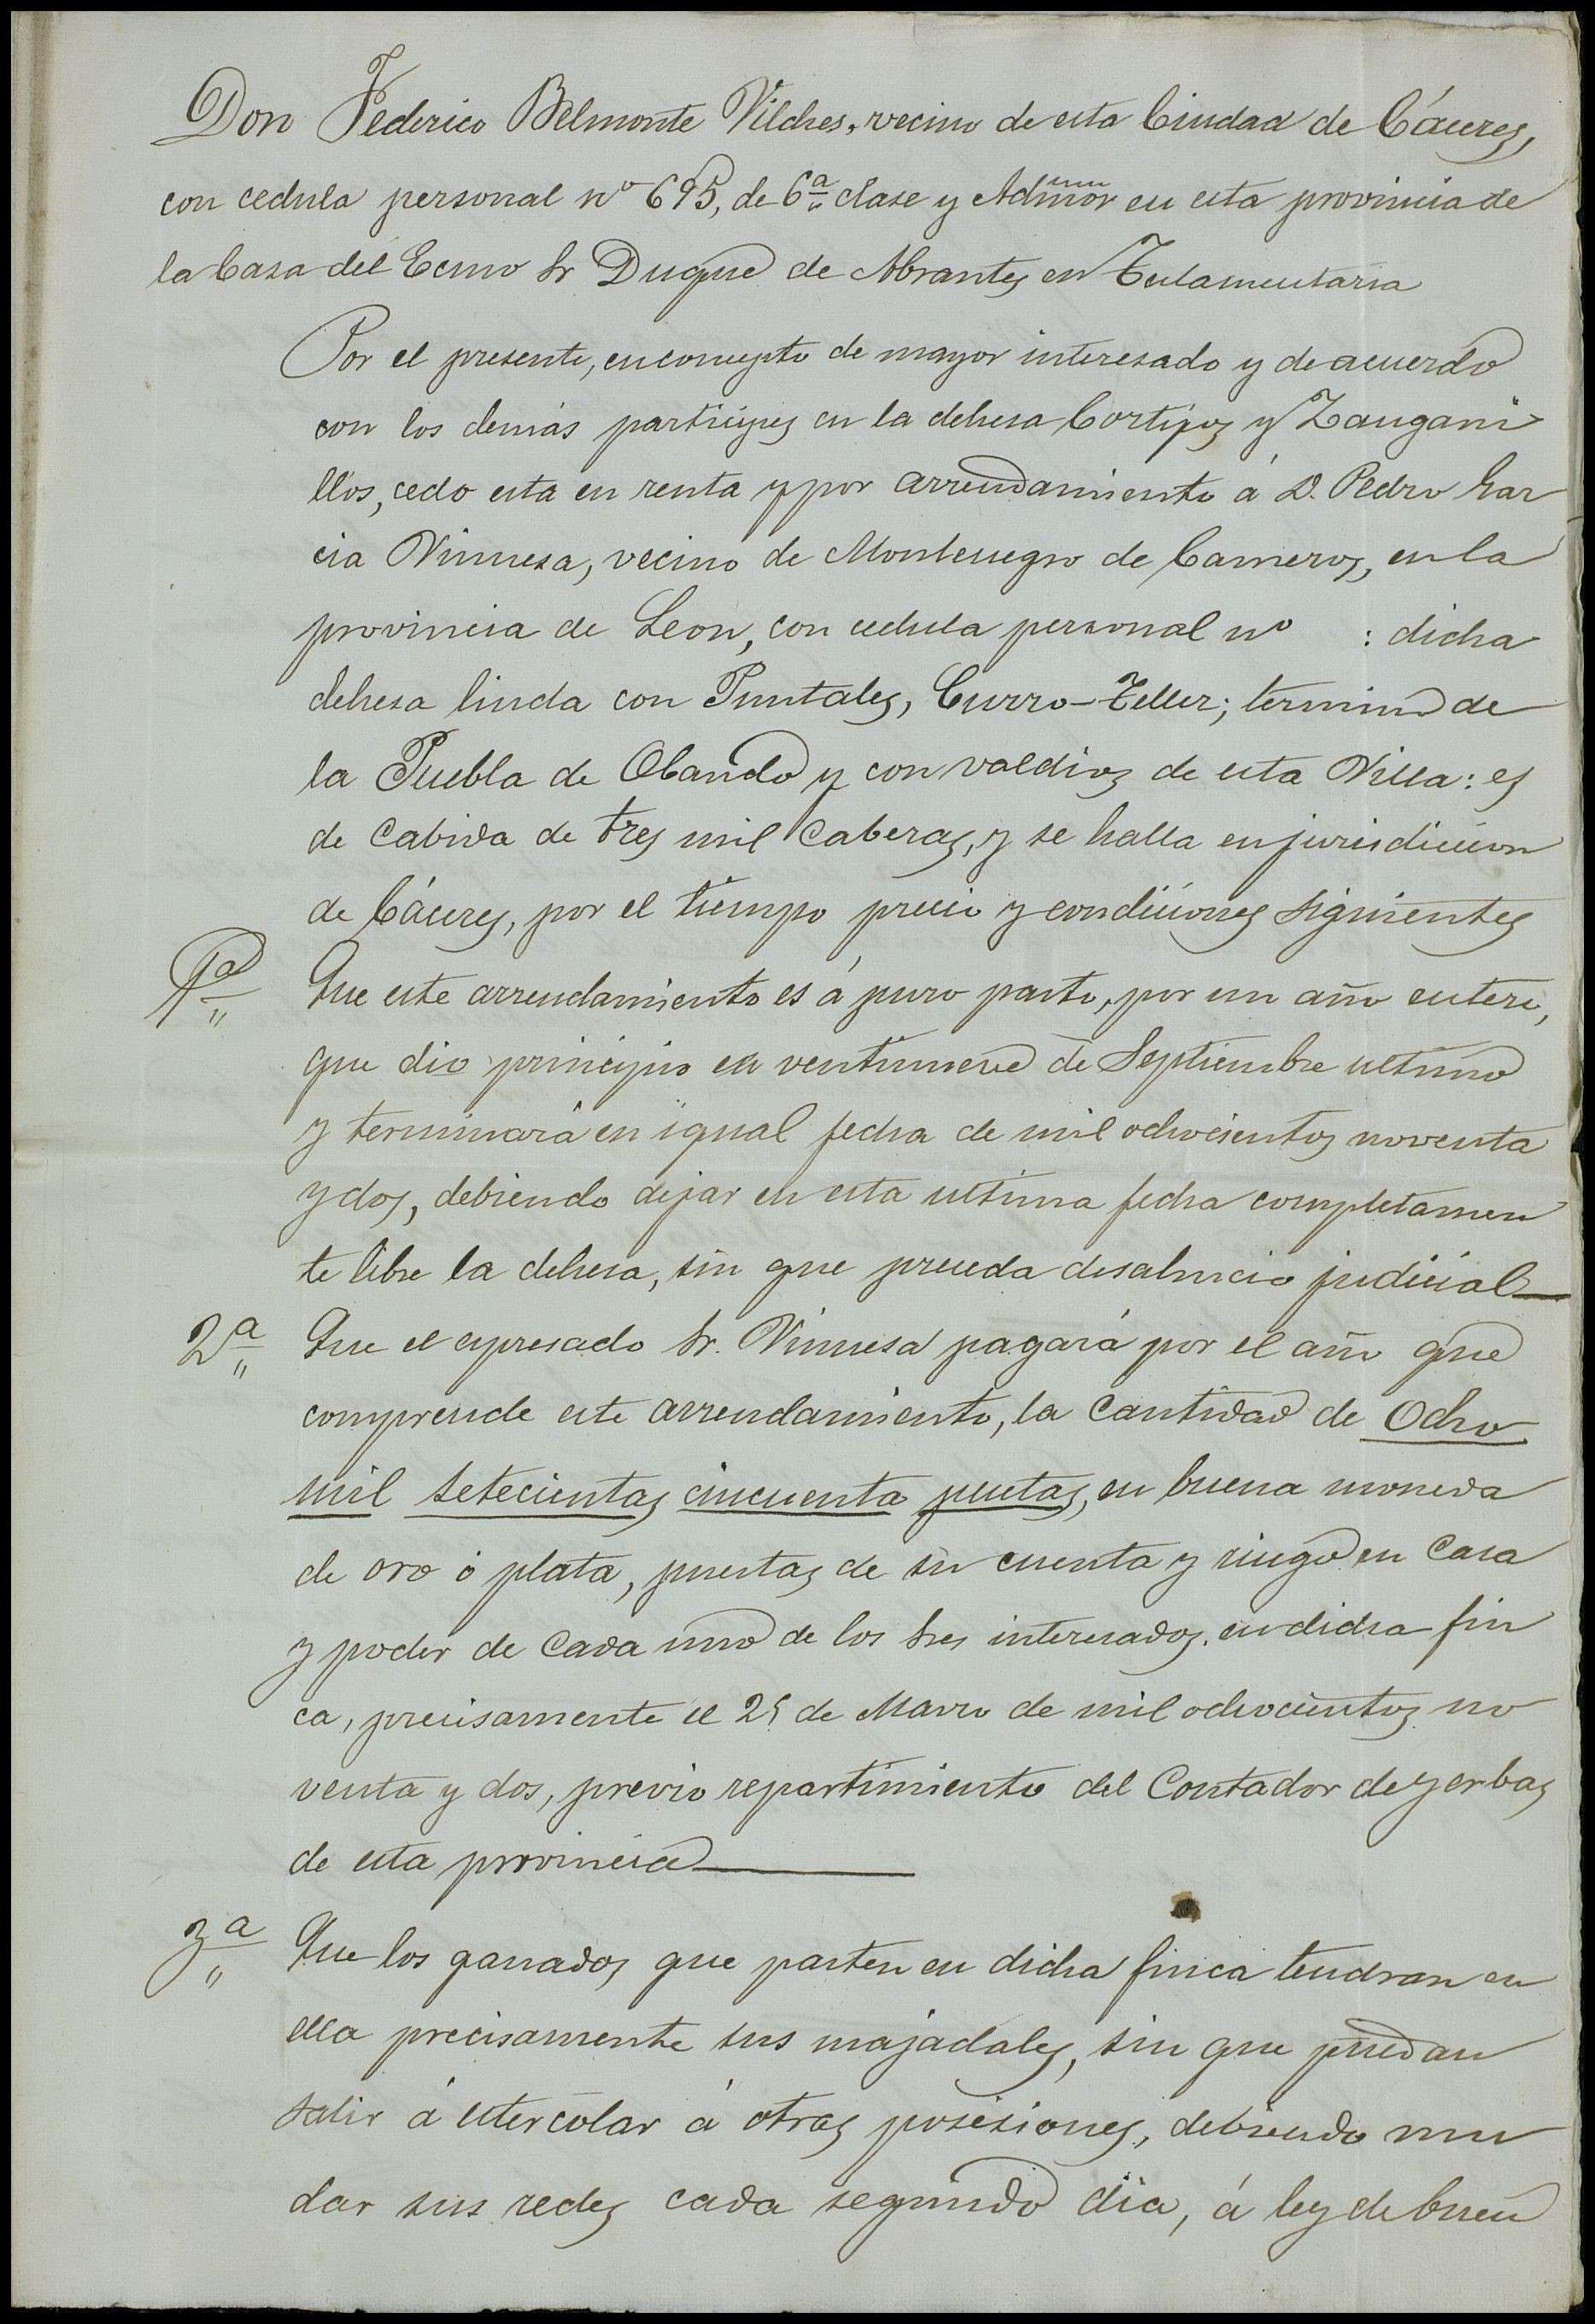 Don Federico Belmonte Vilches, vecino de esta Ciudad de Cáceres,
con cedula personal nº 695, de 6ª clase y Admor en esta provincia de
la Casa del Ecmo Sr Duque de Abrantes en Testamentaria
Por el presente, en concepto de mayor interesado y de acuerdo
con los demás participes en la dehesa Cortijos y Zangani
llos, cedo esta en renta y por arrendamiento á D. Pedro Gar
cia Vinuesa, vecino de Montenegro de Cameros, en la
provincia de Leon, con cedula personal nº : dicha
dehesa linda con Puntales, Curro-Teller; termino de
la Puebla de Obando y con valdios de esta Villa: es
de cabida de tres mil Cabezas, y se halla en jurisdiccion
de Cáceres, por el tiempo precio y condiciones siguientes
1ª Que este arrendamiento es á puro pasto, por un año entero,
que dio principio en ventinueve de Septiembre ultimo
y terminará en igual fecha de mil ochocientos noventa
y dos, debiendo dejar en esta ultima fecha completamen
te libre la dehesa, sin que preceda desahucio judicial
2ª Que el espresado Sr. Vinuesa pagará por el año que
comprende este arrendamiento, la cantidad de Ocho
mil setecientas cincuenta pesetas, en buena moneda
de oro ó plata, puestas de su cuenta y riesgo en Casa
y poder de cada uno de los Sres interesados en dicha fin
ca, precisamente el 25 de Marzo de mil ochocientos no
venta y dos, previo repartimiento del Contador de yerbas
de esta provincia
3ª Que los ganados que pasten en dicha finca tendran en
ella precisamente sus majadales, sin que puedan
salir á estercolar á otras posesiones, debiendo mu
dar sus redes cada segundo dia, á ley de buen